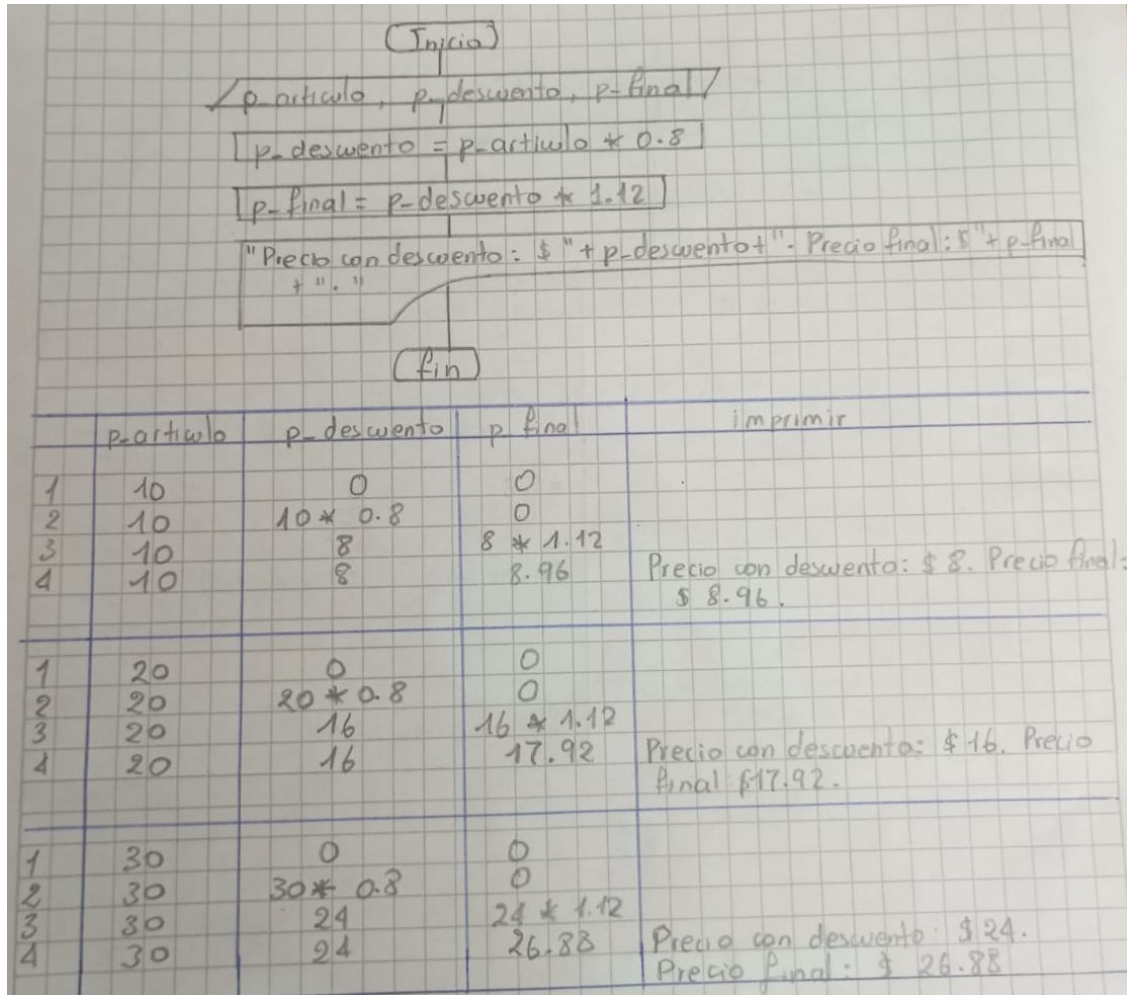 Inicio
p-articulo, p-descuento, p-final
p-descuento = p-articulo * 0.8
p-final = p-descuento * 1.12
"Precio con descuento: $ " + p-descuento + ". Precio final: $ " + p-final
+ "."
fin
p-articulo p-descuento p final imprimir
1 10 0 0
2 10 10 * 0.8 0
3 10 8 8 * 1.12
4 10 8 8.96 Precio con descuento: $ 8. Precio final:
$ 8.96.
1 20 0 0
2 20 20 * 0.8 0
3 20 16 16 * 1.12
4 20 16 17.92 Precio con descuento: $ 16. Precio
final $17.92.
1 30 0 0
2 30 30 * 0.8 0
3 30 24 24 * 1.12
4 30 24 26.88 Precio con descuento: $ 24.
Precio final: $ 26.88